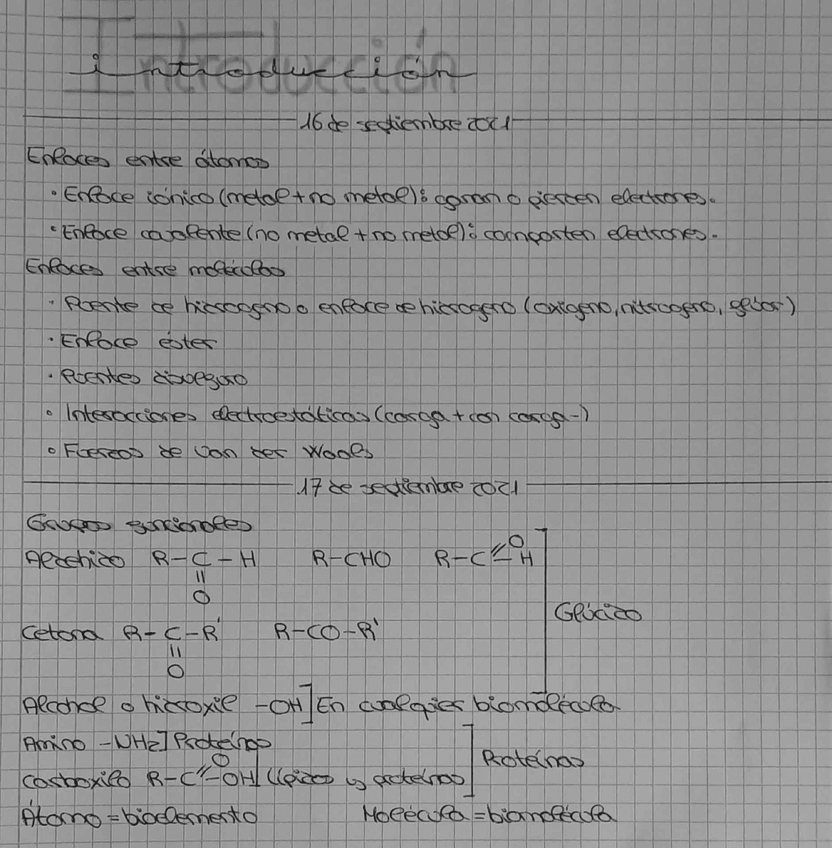 Introducción
16 de septiembre 2021
Enlaces entre átomos
· Enlace iónico (metal + no metal): ganan o pierden electrones.
· Enlace covalente (no metal + no metal): comparten electrones.
Enlaces entre moléculas
· Puente de hidrógeno o enlace de hidrógeno (oxígeno, nitrógeno, flúor)
· Enlace éster
· Puentes disulfuro
· Interacciones electroestáticas (carga + con carga -)
· Fuerzas de Van der Waals
17 de septiembre 2021
Grupos funcionales
Aldehído R-C-H R-CHO R-C=O H
=
O
Glúcido
Cetona R-C-R' R-CO-R'
=
O
Alcohol o hidroxil -OH] En cualquier biomolécula
Amino -NH2] Proteínas
Carboxilo R-C=O-OH] Lípidos y proteínas] Proteínas
Átomo = bioelemento Molécula = biomolécula